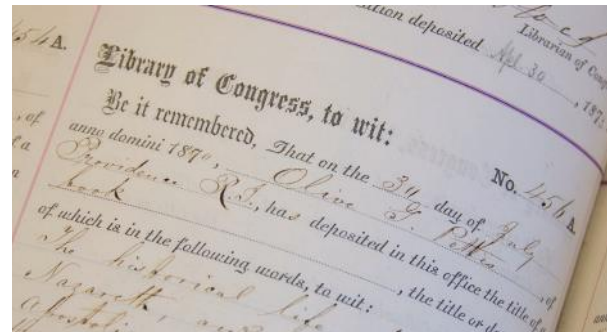 deposited Apl. 30, 187
Librarian of Cong
454 A.
Library of Congress, to wit:
No. 456 A
Be it remembered, That on the 30 day of July
anno domini 1870, Olive G. Pettis, of
Providence R.I., has deposited in this office the title of
book, the title or
of which is in the following words, to wit:
The historical life
Nazareth, and
Apostoli